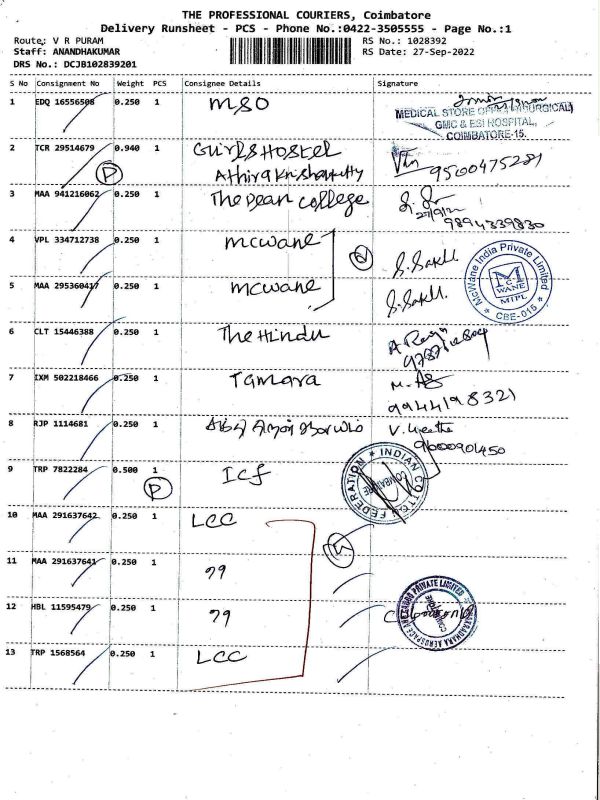 THE PROFESSIONAL COURIERS, Coimbatore
Delivery Runsheet - PCS - Phone No.:0422-3505555 - Page No.:1
Route: V R PURAM
RS No.: 1028392
Staff: ANANDHAKUMAR
RS Date: 27-Sep-2022
DRS No.: DCJB102839201
S No Consignment No Weight PCS Consignee Details Signature
1 EDQ 16556508 0.250 1 MSO
MEDICAL STORE
GMC & ESI HOSPITAL,
COIMBATORE-15.
2 TCR 29514679 0.940 1 GUIRLS HOSTEL
P Athira 9500475281
3 MAA 941216062 0.250 1 The Dean college
27/9/22
9894339830
4 VPL 334712738 0.250 1 mcwane
McWane India Private Limited
McWANE
MIPL
* CBE-015 *
5 MAA 295360417 0.250 1 mcwane
6 CLT 15446388 0.250 1 The Hindu
7 IXM 502218466 0.250 1 Tamara
9944198321
8 RJP 1114681 0.250 1
9600090450
9 TRP 7822284 0.500 1 ICF
P
INDIAN COTTON FEDERATION
COIMBATORE
10 MAA 291637642 0.250 1 LCC
11 MAA 291637641 0.250 1 "
12 HBL 11595479 0.250 1 "
PRIVATE LIMITED
13 TRP 1568564 0.250 1 LCC